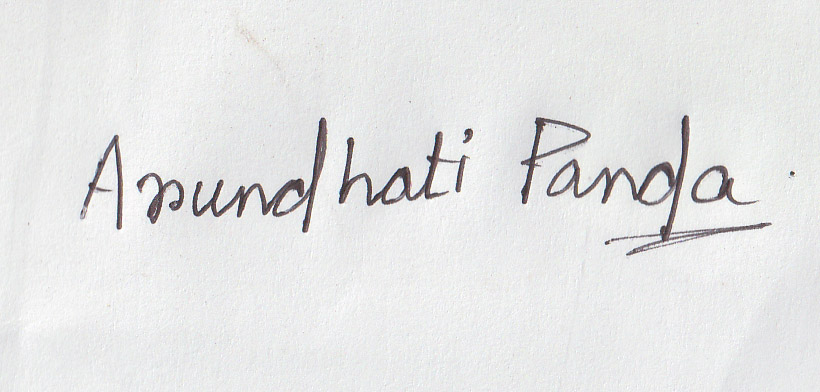 Arundhati Panda.